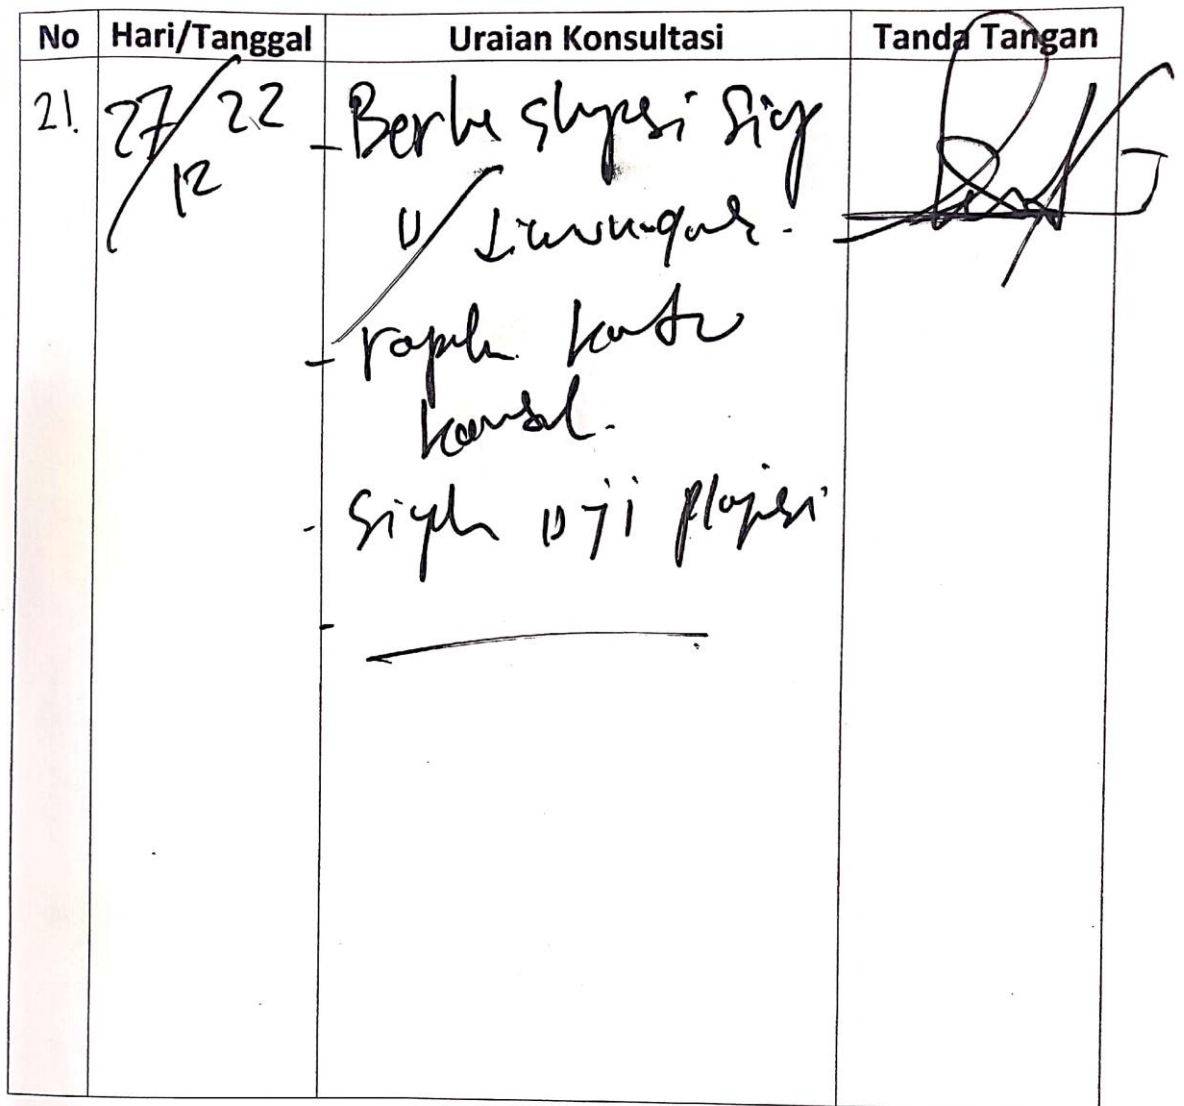 No Hari/Tanggal Uraian Konsultasi Tanda Tangan
21. 27/12 22 - Berks skripsi siap
u/
- rapih kartu
konsul.
- Siapkn uji plagiasi
-